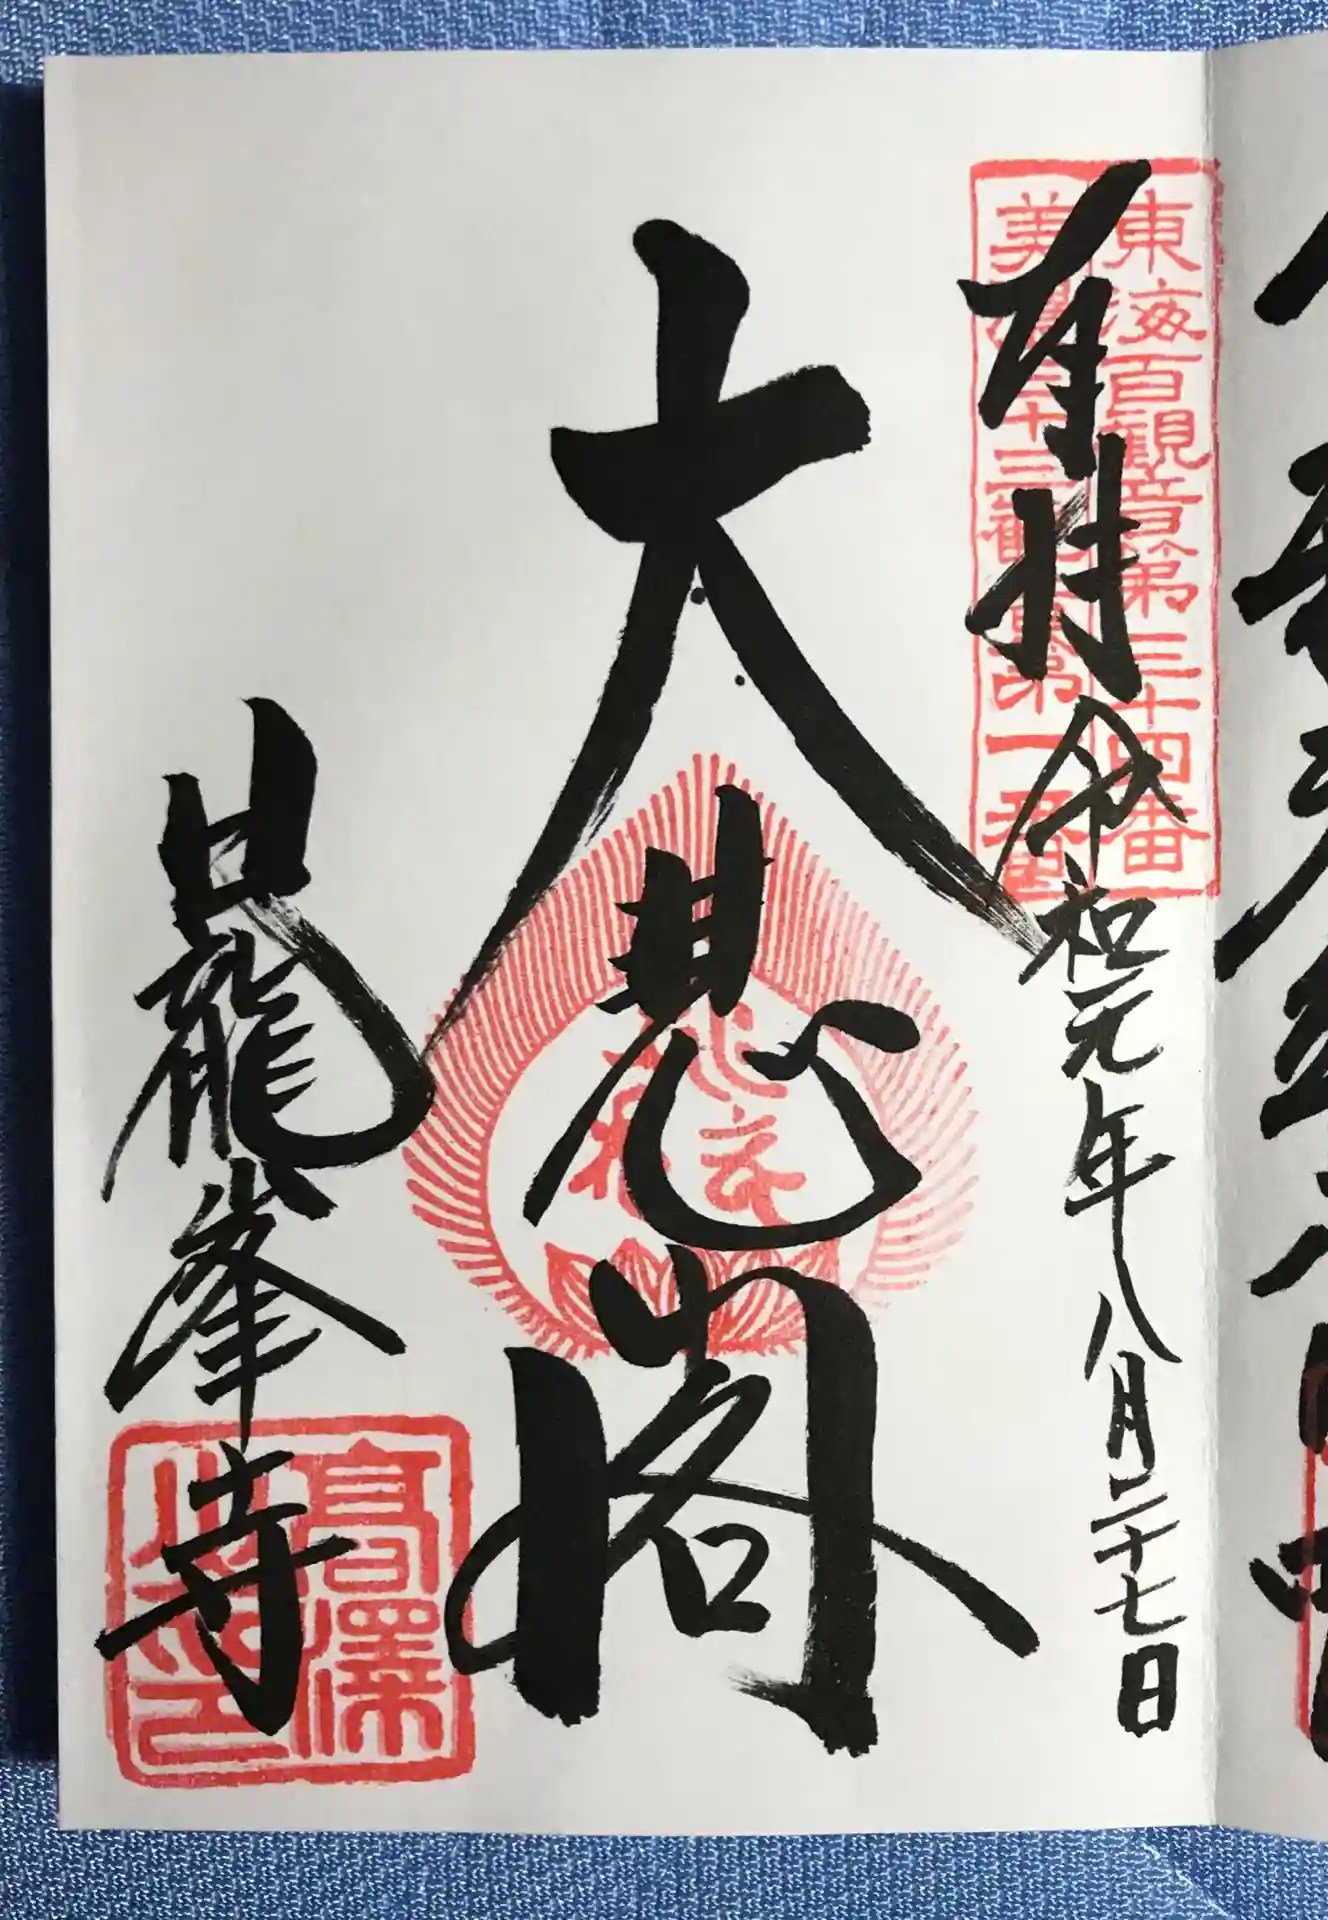 東海百観音第三十四番
美濃三十三観音第一番
奉拝 令和元年八月二十七日
大悲閣
日龍峯寺
高澤